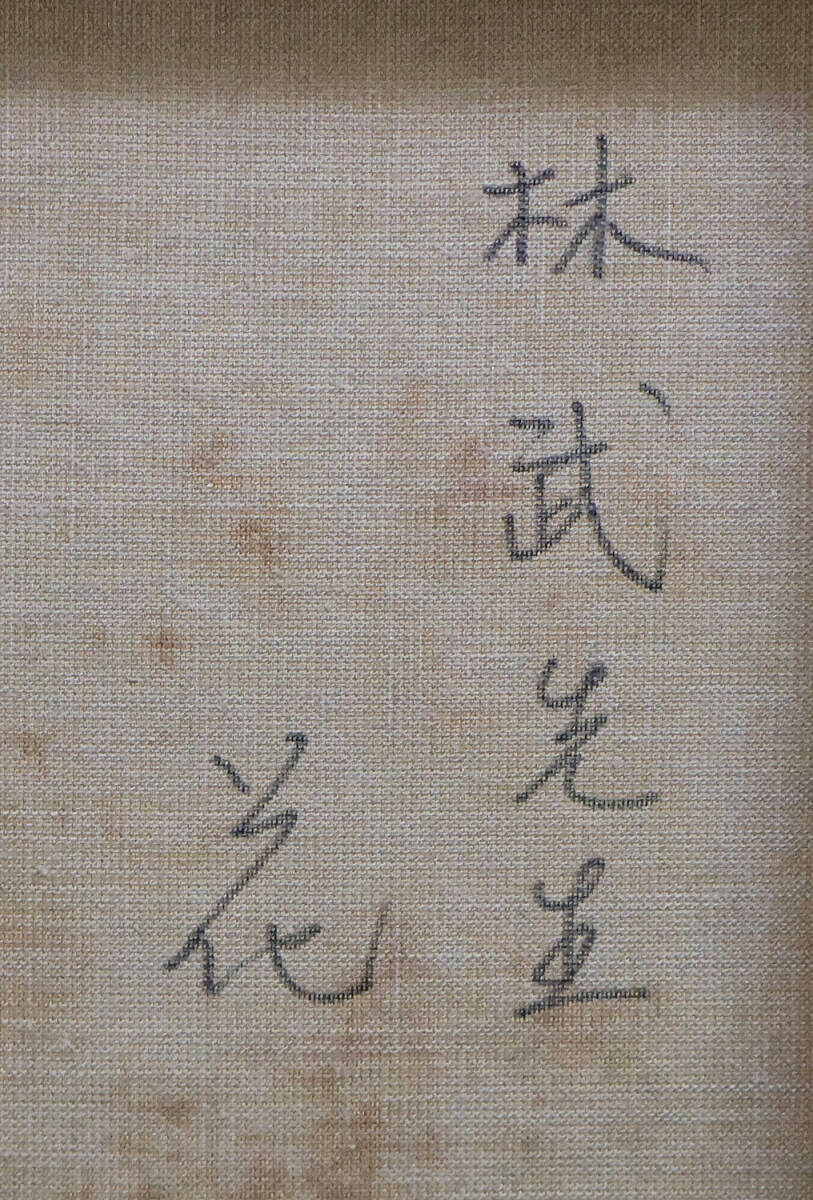 林武先生
花